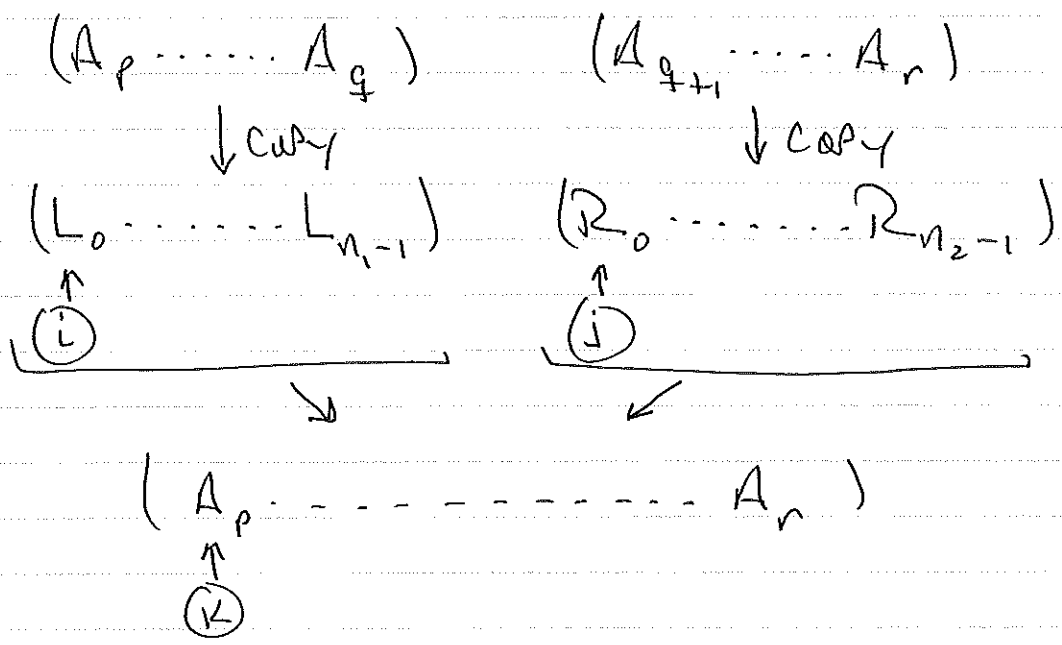 (A_p ...... A_q) (A_{q+1} ..... A_r)
↓ COPY ↓ COPY
(L_0 ....... L_{n_1-1}) (R_0 ....... R_{n_2-1})
↑ ↑
i j
↘ ↙
(A_p . - - - - - - - - - - - . A_r)
↑
K